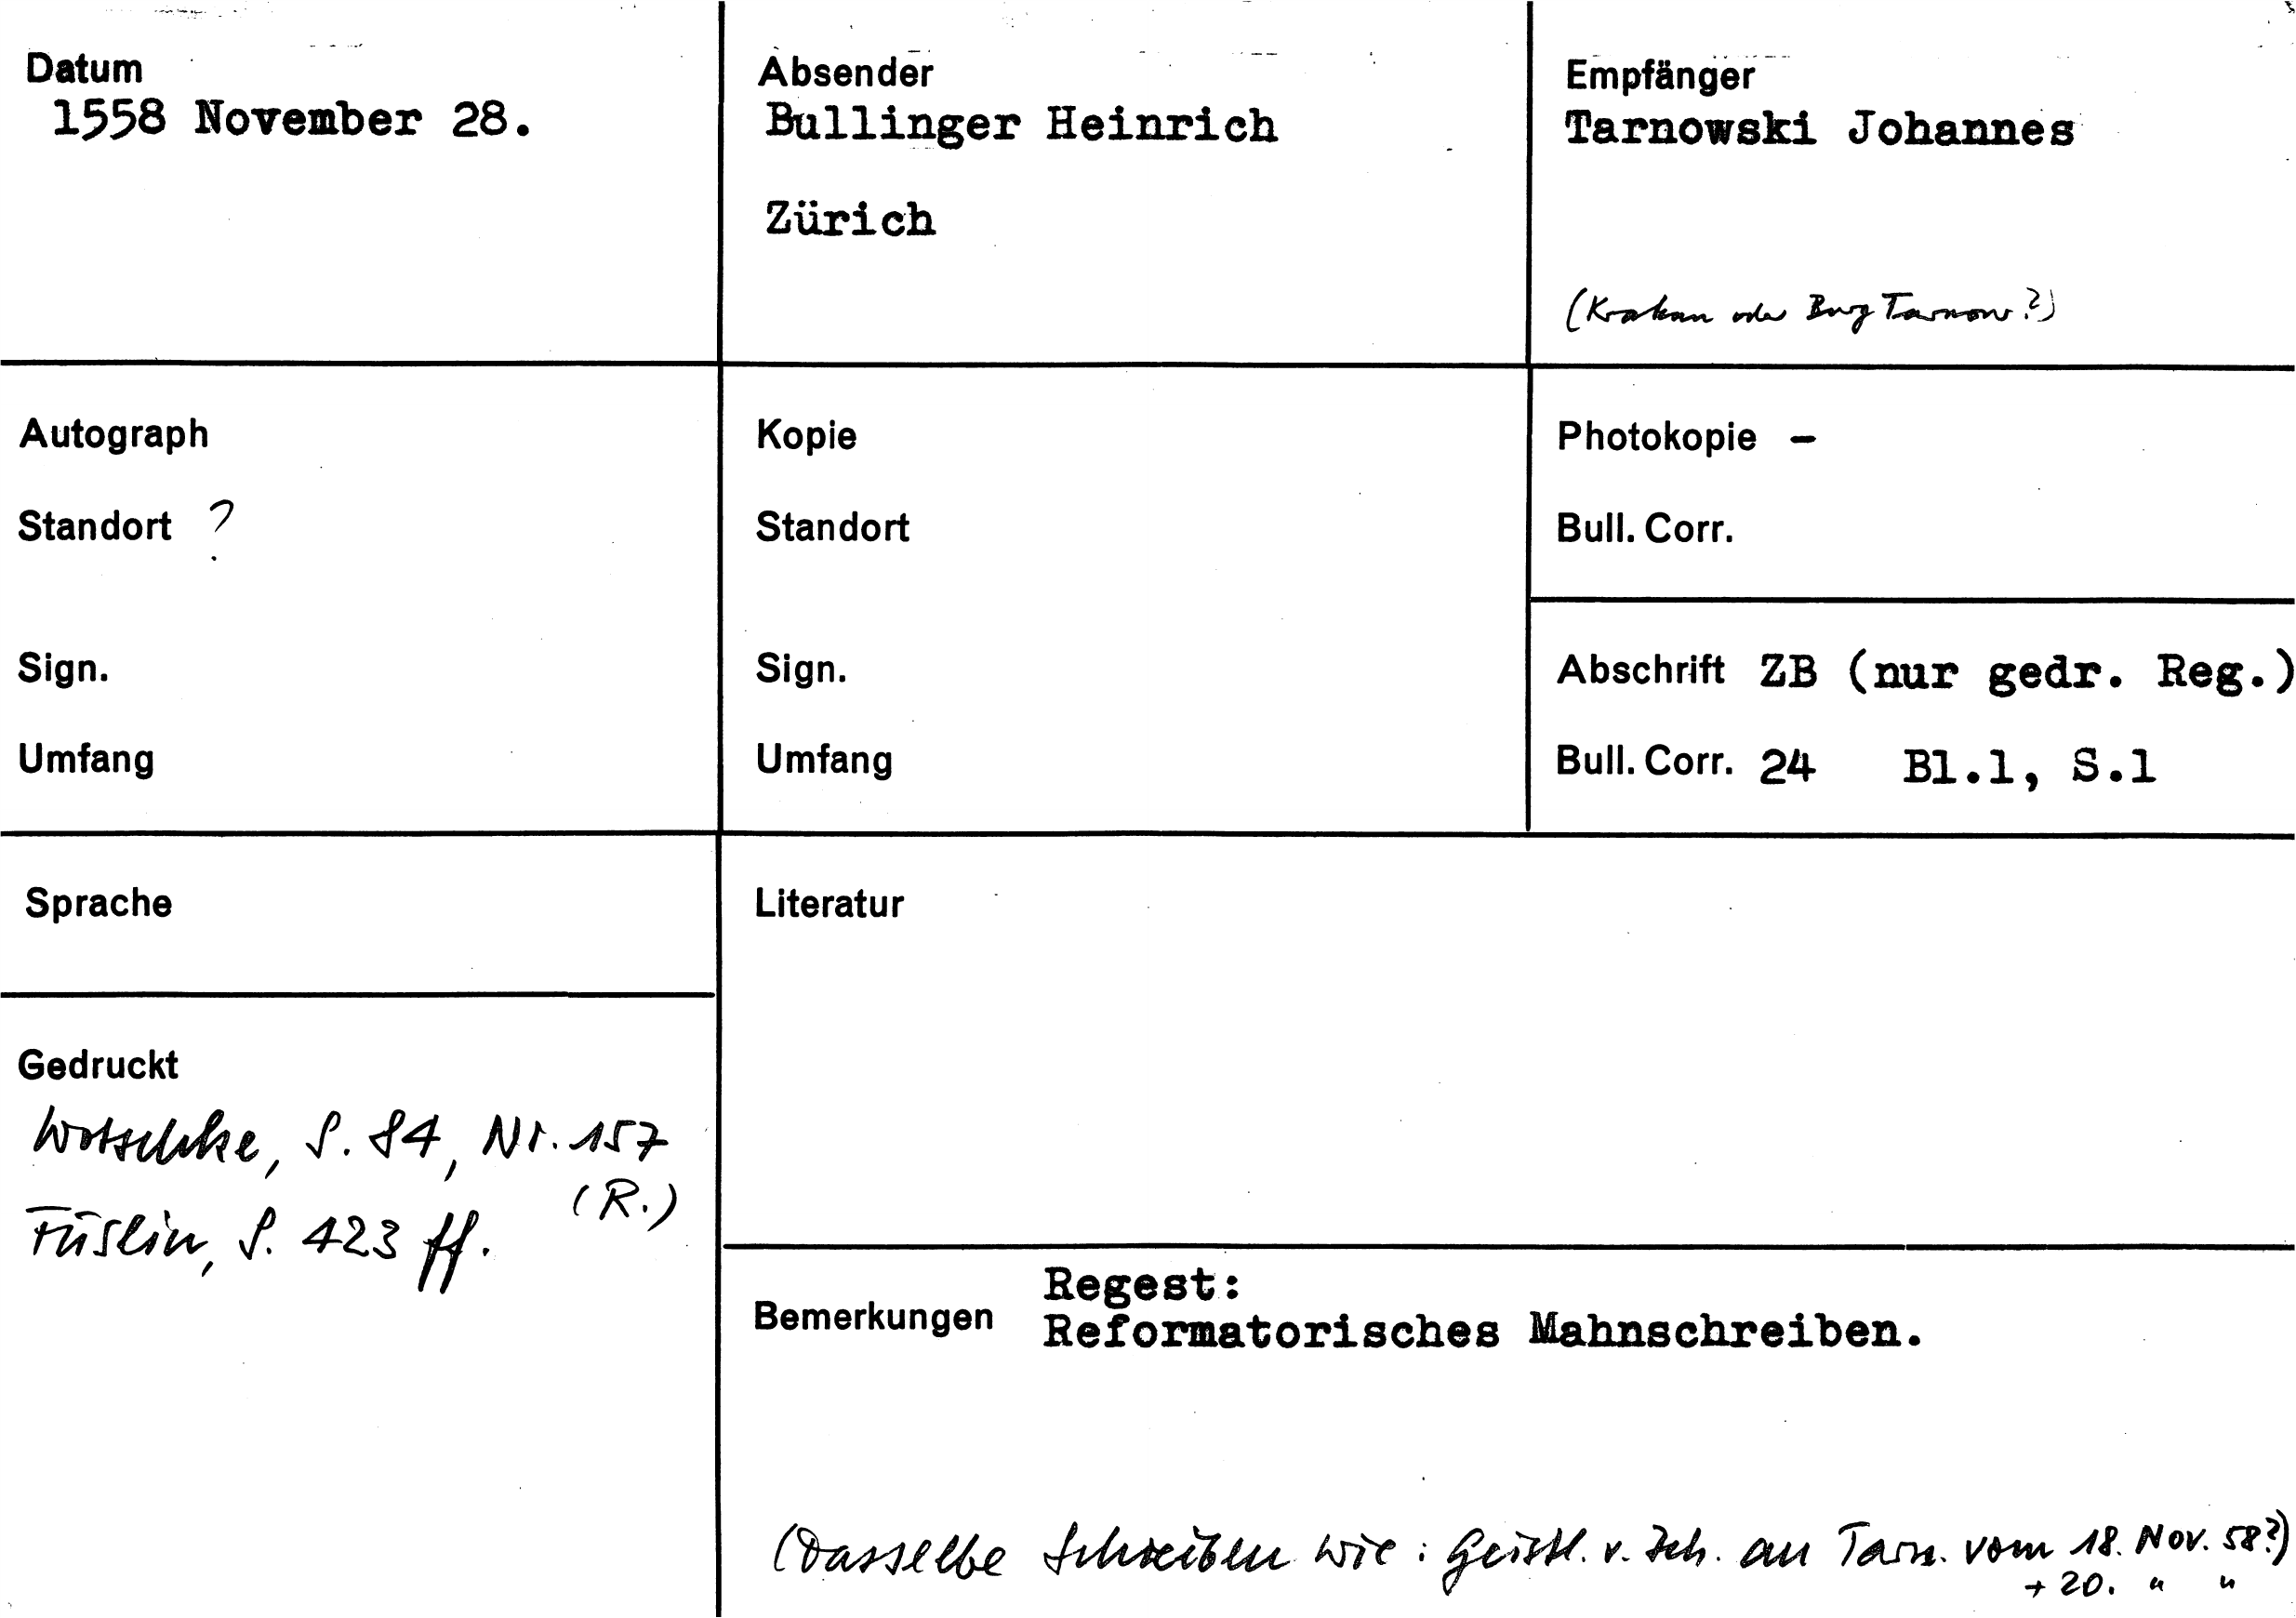 Datum
1558 November 28.
Absender
Bullinger Heinrich
Zürich
Empfänger
Tarnowski Johannes
(Krakau oder Burg Tarnow?)
Autograph
Standort ?
Sign.
Umfang
Kopie
Standort
Sign.
Umfang
Photokopie –
Bull. Corr.
Abschrift ZB (nur gedr. Reg.)
Bull. Corr. 24 Bl.1, S.1
Sprache
Literatur
Gedruckt
Wotschke, S. 84, Nr. 157
(R.)
Füslin, S. 423 ff.
Bemerkungen
Regest:
Reformatorisches Mahnschreiben.
(Dasselbe Schreiben wie: Geistl. v. Zch. an Tarn. vom 18. Nov. 58?)
+ 20. " "